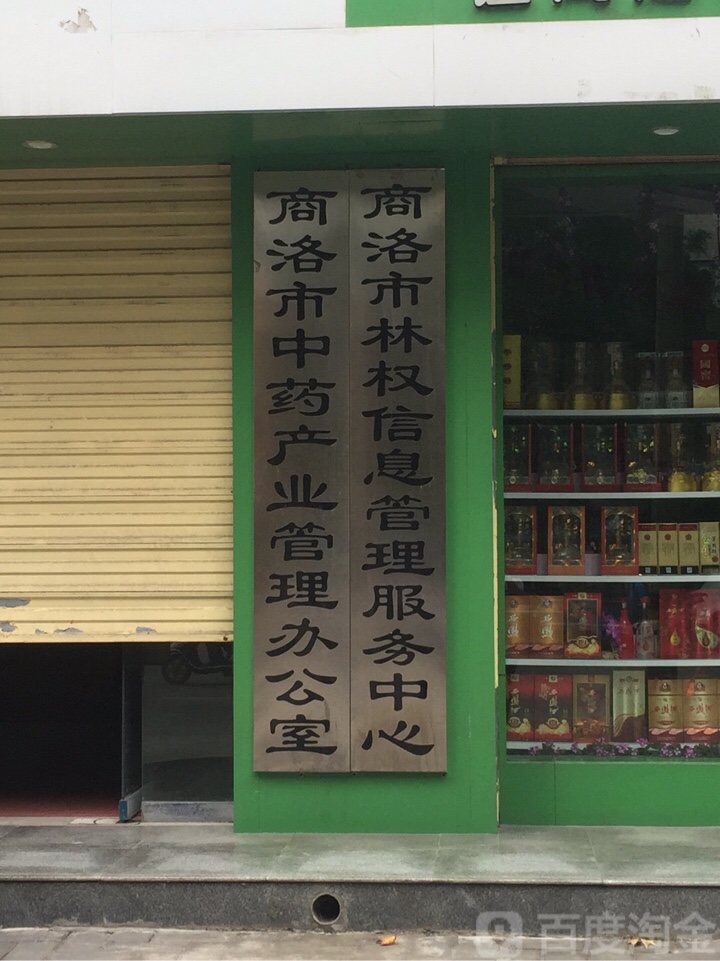 商洛市林权信息管理服务中心
商洛市中药产业管理办公室
百度淘金